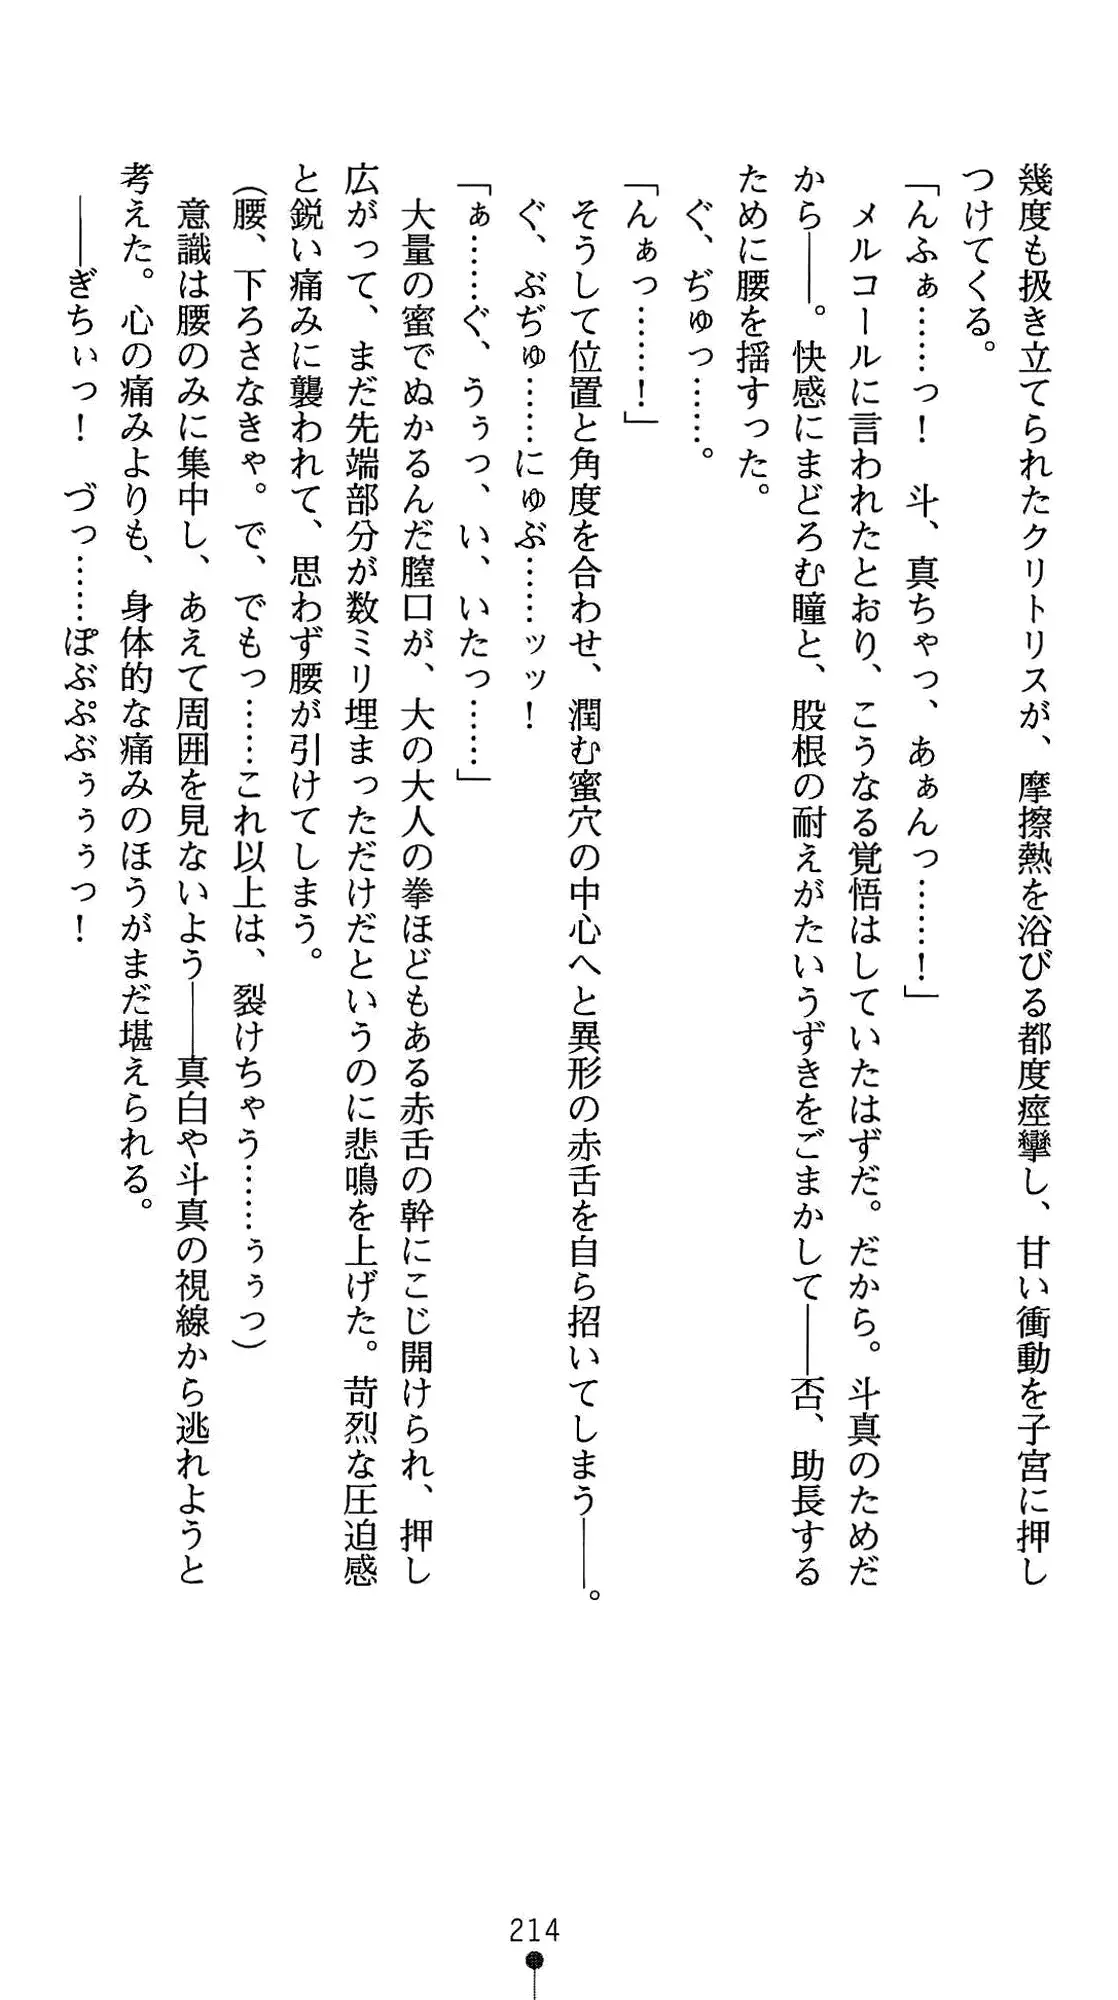 幾度も扱き立てられたクリトリスが、摩擦熱を浴びる都度痙攣し、甘い衝動を子宮に押し
つけてくる。
「んふぁ……っ！　斗、真ちゃっ、あぁんっ……！」
　メルコールに言われたとおり、こうなる覚悟はしていたはずだ。だから。斗真のためだ
から――。快感にまどろむ瞳と、股根の耐えがたいうずきをごまかして――否、助長する
ために腰を揺すった。
　ぐ、ぢゅっ……。
「んぁっ……！」
　そうして位置と角度を合わせ、潤む蜜穴の中心へと異形の赤舌を自ら招いてしまう――。
　ぐ、ぶぢゅ……にゅぶ……ッッ！
「ぁ……ぐ、うぅっ、い、いたっ……」
　大量の蜜でぬかるんだ膣口が、大の大人の拳ほどもある赤舌の幹にこじ開けられ、押し
広がって、まだ先端部分が数ミリ埋まっただけだというのに悲鳴を上げた。苛烈な圧迫感
と鋭い痛みに襲われて、思わず腰が引けてしまう。
（腰、下ろさなきゃ。で、でもっ……これ以上は、裂けちゃう……ぅぅっ）
　意識は腰のみに集中し、あえて周囲を見ないよう――真白や斗真の視線から逃れようと
考えた。心の痛みよりも、身体的な痛みのほうがまだ堪えられる。
　――ぎちぃっ！　づっ……ぽぶぷぶぅぅぅっ！
214